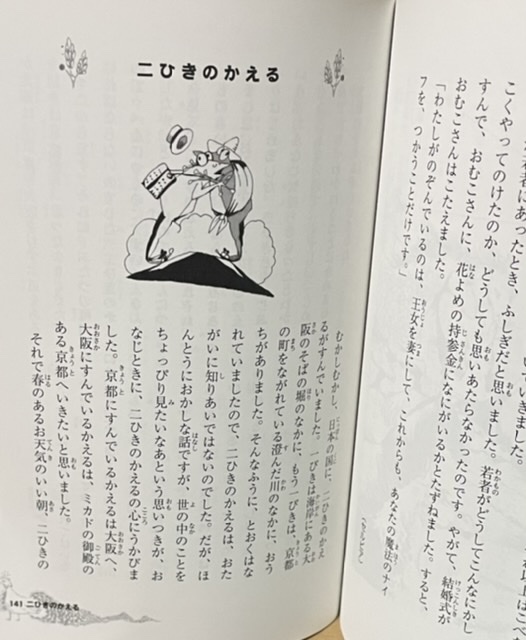 若者にあったとき、ふしぎだと思いました。若者がどうしてこんなにかし
こくやってのけたのか、どうしても思いあたらなかったのです。やがて、結婚式が
すんで、おむこさんに、花よめの持参金になにがいるかとたずねました。すると、
おむこさんはこたえました。
「わたしがのぞんでいるのは、王女を妻にして、これからも、あなたの魔法のナイ
フを、つかうことだけです。」
二ひきのかえる
むかしむかし、日本の国に、二ひきのかえ
るがすんでいました。一ぴきは海岸にある大
阪のそばの堀のなかに、もう一ぴきは、京都
の町をながれている澄んだ川のなかに、おう
ちがありました。そんなふうに、とおくはな
れていましたので、二ひきのかえるは、おた
がいに知りあいではないのでした。だが、ほ
んとうにおかしな話ですが、世の中のことを
ちょっぴり見たいなあという思いつきが、お
なじときに、二ひきのかえるの心にうかびま
した。京都にすんでいるかえるは大阪へ、
大阪にすんでいるかえるは、ミカドの御殿の
ある京都へいきたいと思いました。
それで春のあるお天気のいい朝、二ひきの
141 二ひきのかえる